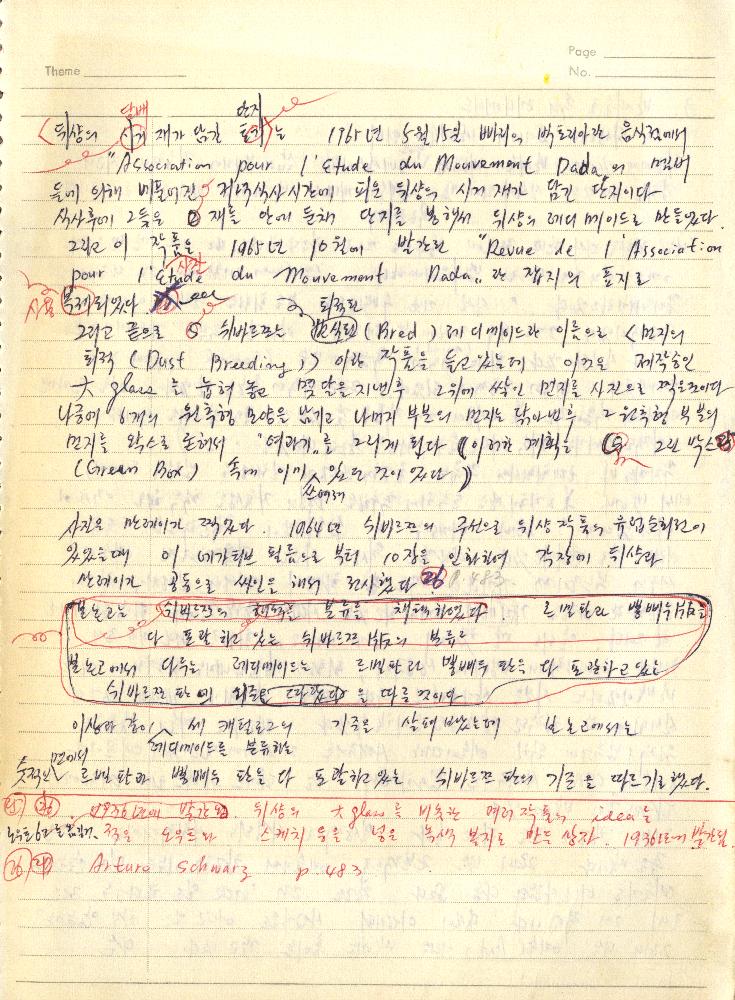 Page
Theme
No.
담배 단지
〈뒤샹의 시거 재가 담긴 는 1965년 5월 15일 빠리의 빅토리아란 음식점에서
"Association pour l'Etude du Mouvement Dada"의 멤버
들에 의해 베풀어진 저녁식사시간에 피운 뒤샹의 시거 재가 담긴 단지이다
식사후에 그들은 재를 안에 단지를 봉해서 뒤샹의 레디메이드로 만들었다.
그리고 이 작품은 1965년 10월에 발간된 "Revue de l'Association
사진
pour l'Etude du Mouvement Dada"란 잡지의 표지로
사용 되었다
퇴적된
그리고 끝으로 쉬바르쯔는 번식된 (Bred) 레디메이드란 이름으로 〈먼지의
퇴적 (Dust Breeding)〉이란 작품을 들고 있는데 이것은 제작중인
大 glass를 눕혀 놓고 몇 달을 지낸후 그위에 쌓인 먼지를 사진으로 찍은것이다
나중에 6개의 원추형 모양을 남기고 나머지 부분의 먼지는 닦아낸후 그 원추형 부분의
먼지를 왁스로 굳혀서 "여과기"를 그리게 된다 (이러한 계획은 그린 박스
(Green Box) 속에 이미 있던 것이었다)
쓰여져
사진은 만레이가 찍었다. 1964년 쉬바르쯔의 주선으로 뒤샹 작품의 유럽순회전이
있었는데 이 네가티브 필름으로 부터 10장을 인화하여 각장에 뒤샹과
만레이가 공동으로 싸인을 해서 전시했다 26 p.483
본 논고는 쉬바르쯔의 분류를 채택하였다. 르벨판과 뽕삐두판을
다 포괄하고 있는 쉬바르쯔 판의 분류
본 논고에서 다루는 레디메이드는 르벨판과 뽕삐두 판을 다 포괄하고 있는
쉬바르쯔 판의 기준 을 따를 것이다
이상과 같이 세 캐털로그의 기준을 살펴 보았는데 본 논고에서는
레디메이드를 분류하는
숫적인 면에서 르벨판과 뽕삐두 판을 다 포괄하고 있는 쉬바르쯔 판의 기준을 따르기로 했다.
25 1936년에 발간된 뒤샹의 大 glass를 비롯한 여러 작품의 idea를
적은 노우트와 스케치 등을 넣은 녹색 복지로 만든 상자. 1936년에 발간됨.
26 Arturo Schwarz p 483